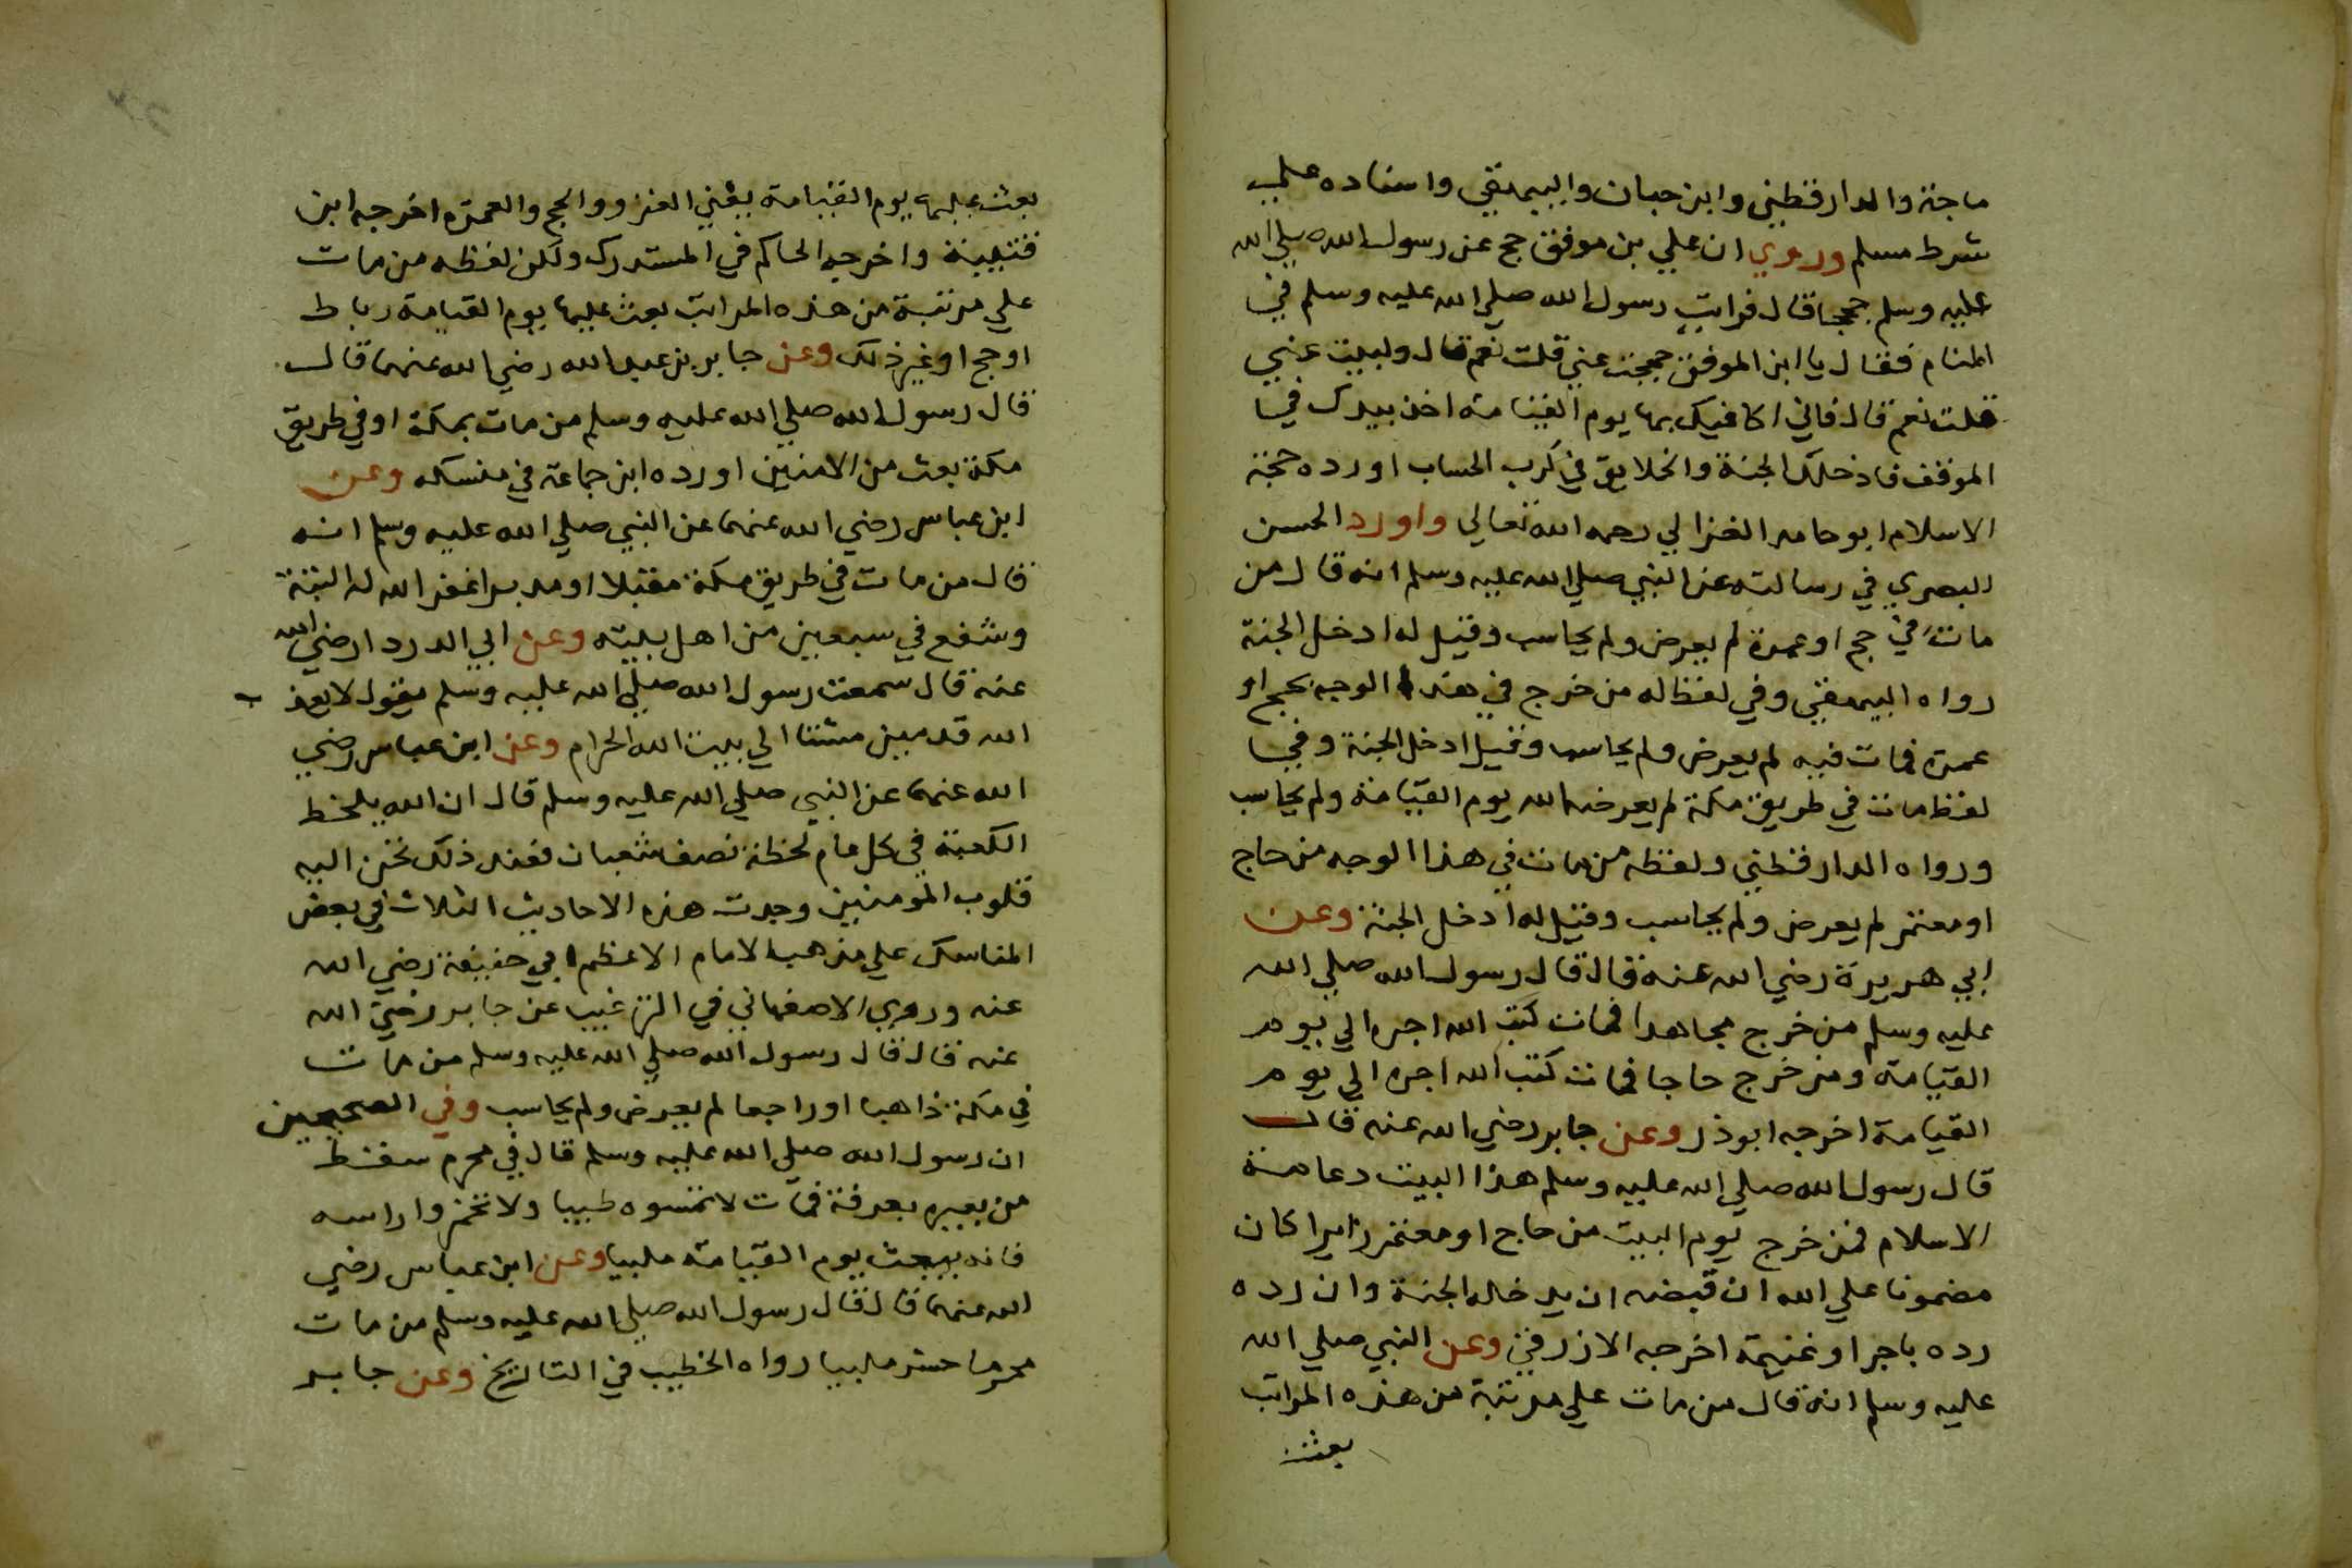 ماجة والدارقطني وابن حبان والبيهقي واسناده علي
شرط مسلم وروي ان علي بن موفق حج عن رسول الله صلي الله
عليه وسلم حججا قال فرايت رسول الله صلي الله عليه وسلم في
المنام فقال يا ابن الموفق حججت عني قلت نعم قال ولبيت عني
قلت نعم قال فاني اكافيك بها يوم القيامة اخذ بيدك في
الموقف فادخلك الجنة والخلايق في كرب الحساب اورده حجة
الاسلام ابو حامد الغزالي رحمه الله تعالي واورد الحسن
البصري في رسالته عن النبي صلي الله عليه وسلم انه قال من
مات في حج او عمرة لم يعرض ولم يحاسب وقيل له ادخل الجنة
رواه البيهقي وفي لفظ له من خرج في هذا الوجه بحج او
عمرة فمات فيه لم يعرض ولم يحاسب وقيل ادخل الجنة وفي
لفظ مات في طريق مكة لم يعرضه الله يوم القيامة ولم يحاسب
ورواه الدارقطني ولفظه من مات في هذا الوجه من حاج
او معتمر لم يعرض ولم يحاسب وقيل له ادخل الجنة وعن
ابي هريرة رضي الله عنه قال قال رسول الله صلي الله
عليه وسلم من خرج مجاهدا فمات كتب الله اجره الي يوم
القيامة ومن خرج حاجا فمات كتب الله اجره الي يوم
القيامة اخرجه ابو ذر وعن جابر رضي الله عنه قال
قال رسول الله صلي الله عليه وسلم هذا البيت دعامة
الاسلام فمن خرج يوم البيت من حاج او معتمر زايرا كان
مضمونا علي الله ان قبضه ان يدخله الجنة وان رده
رده باجر او غنيمة اخرجه الازرقي وعن النبي صلي الله
عليه وسلم انه قال من مات علي مرتبة من هذه المراتب
بعث
بعث عليها يوم القيامة يعني الغزو والحج والعمرة اخرجه ابن
قتيبة واخرجه الحاكم في المستدرك ولكن لفظه من مات
علي مرتبة من هذه المراتب بعث عليها يوم القيامة رباط
او حج او غير ذلك وعن جابر بن عبد الله رضي الله عنهما قال
قال رسول الله صلي الله عليه وسلم من مات بمكة او في طريق
مكة بعث من الامنين اورده ابن جماعة في منسكه وعن
ابن عباس رضي الله عنهما عن النبي صلي الله عليه وسلم انه
قال من مات في طريق مكة مقبلا او مدبرا غفر الله له البتة
وشفع في سبعين من اهل بيته وعن ابي الدردا رضي الله
عنه قال سمعت رسول الله صلي الله عليه وسلم يقول لا يعذب
الله قدمين مشتا الي بيت الله الحرام وعن ابن عباس رضي
الله عنهما عن النبي صلي الله عليه وسلم قال ان الله يلحظ
الكعبة في كل عام لحظة نصف شعبان فعند ذلك تحن اليه
قلوب المومنين وجدت هذه الاحاديث الثلاث في بعض
المناسك علي مذهب الامام الاعظم ابي حنيفة رضي الله
عنه وروي الاصفهاني في الترغيب عن جابر رضي الله
عنه قال قال رسول الله صلي الله عليه وسلم من مات
في مكة ذاهبا او راجعا لم يعرض ولم يحاسب وفي الصحيحين
ان رسول الله صلي الله عليه وسلم قال في محرم سقط
من بعيره بعرفة فمات لا تمسوه طيبا ولا تخمروا راسه
فانه يبعث يوم القيامة ملبيا وعن ابن عباس رضي
الله عنهما قال قال رسول الله صلي الله عليه وسلم من مات
محرما حشر ملبيا رواه الخطيب في التاريخ وعن جابر